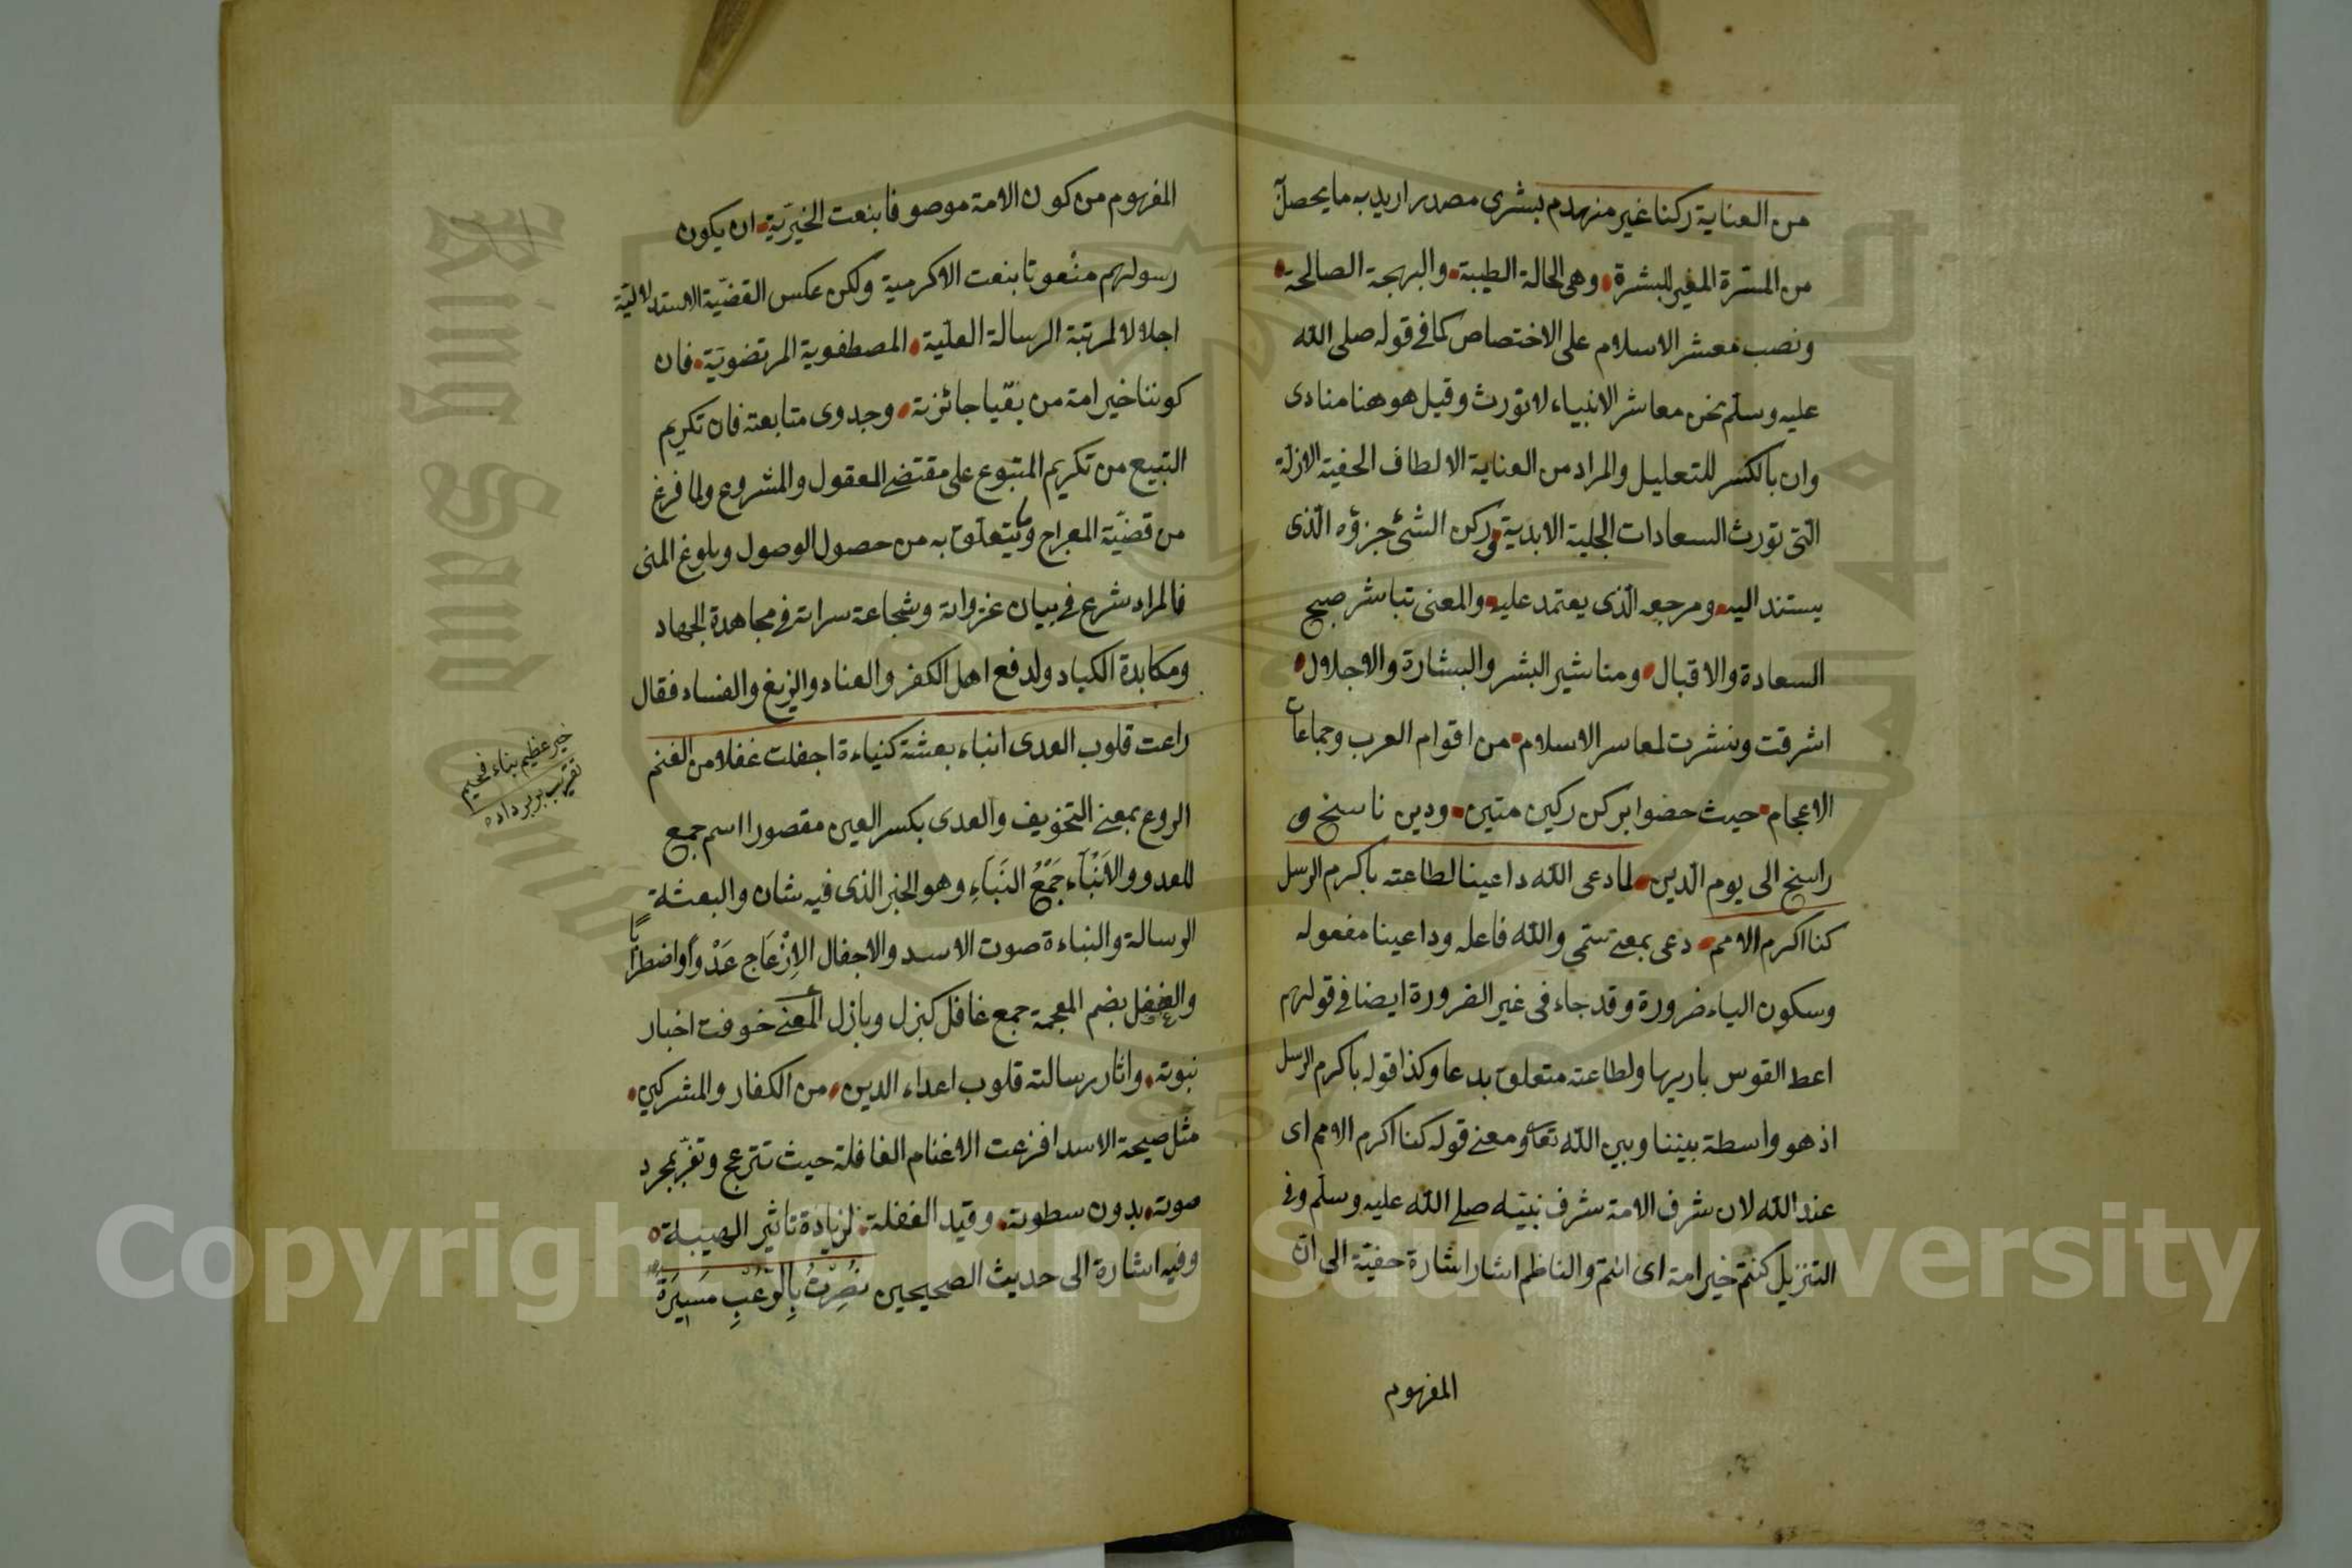 من العناية ركنا غير منهدم بشرى مصدر اريد به ما يحصل
من المسرة المغير للبشرة وهى الحالة الطيبة والبهجة الصالحة
ونصب معشر الاسلام على الاختصاص كما فى قوله صلى الله
عليه وسلم نحن معاشر الانبياء لا نورث وقيل هو هنا منادى
وان بالكسر للتعليل والمراد من العناية الالطاف الخفية الازلة
التى تورث السعادات الجلية الابدية وركن الشئ جزؤه الذى
يستند اليه ومرجعه الذى يعتمد عليه والمعنى تباشر صبح
السعادة والاقبال ومناشير البشر والبشارة والاجلال
اشرقت ونشرت لمعاسر الاسلام من اقوام العرب وجماعات
الاعجام حيث حضوا بركن ركين متين ودين ناسخ و
راسخ الى يوم الدين لما دعى الله داعينا لطاعته باكرم الرسل
كنا اكرم الامم دعى بمعنى سمى والله فاعله وداعينا مفعوله
وسكون الياء ضرورة وقد جاء فى غير الضرورة ايضا فى قولهم
اعط القوس باريها ولطاعته متعلق بدعا وكذا قوله باكرم الرسل
اذ هو واسطة بيننا وبين الله تعا ومعنى قوله كنا اكرم الامم اى
عند الله لان شرف الامة شرف نبيه صلى الله عليه وسلم وفى
التنزيل كنتم خير امة اى انتم والناظم اشار اشارة خفية الى ان
المفهوم
المفهوم من كون الامة موصوفا بنعت الخيرية ان يكون
رسولهم منعوتا بنعت الاكرمية ولكن عكس القضية الاستدلالية
اجلالا لمرتبة الرسالة العلية المصطفوية المرتضوية فان
كوننا خير امة من بقيا جائزته وجدوى متابعته فان تكريم
التبيع من تكريم المتبوع على مقتضى المعقول والمشروع ولما فرغ
من قضية المعراج وما يتعلق به من حصول الوصول وبلوغ المنى
فالمراد شرع فى بيان غزواته وشجاعة سراته فى مجاهدة الجهاد
ومكابدة الكياد ولدفع اهل الكفر والعناد والزيغ والفساد فقال
راعت قلوب العدى انباء بعثته كنباءة اجفلت غفلا من الغنم
الروع بمعنى التخويف والعدى بكسر العين مقصورا اسم جمع
للعدو والانباء جمع النباء وهو الخبر الذى فيه شان والبعثة
الرسالة والنباءة صوت الاسد والاجفال الازعاج عدوا واضطرابا
والغفل بضم المعجمة جمع غافل كبزل وبازل المعنى خوفت اخبار
نبوته واثار رسالته قلوب اعداء الدين من الكفار والمشركين
مثل صيحة الاسد افزعت الاغنام الغافلة حيث تنزعج وتفر بمجرد
صوته بدون سطوته وقيد الغفلة لزيادة تاثير الهيبة
وفيه اشارة الى حديث الصحيحين نصرت بالرعب مسيرة
خبر عظيم بناء فخيم
King Saud University
1957
Copyright © King Saud University